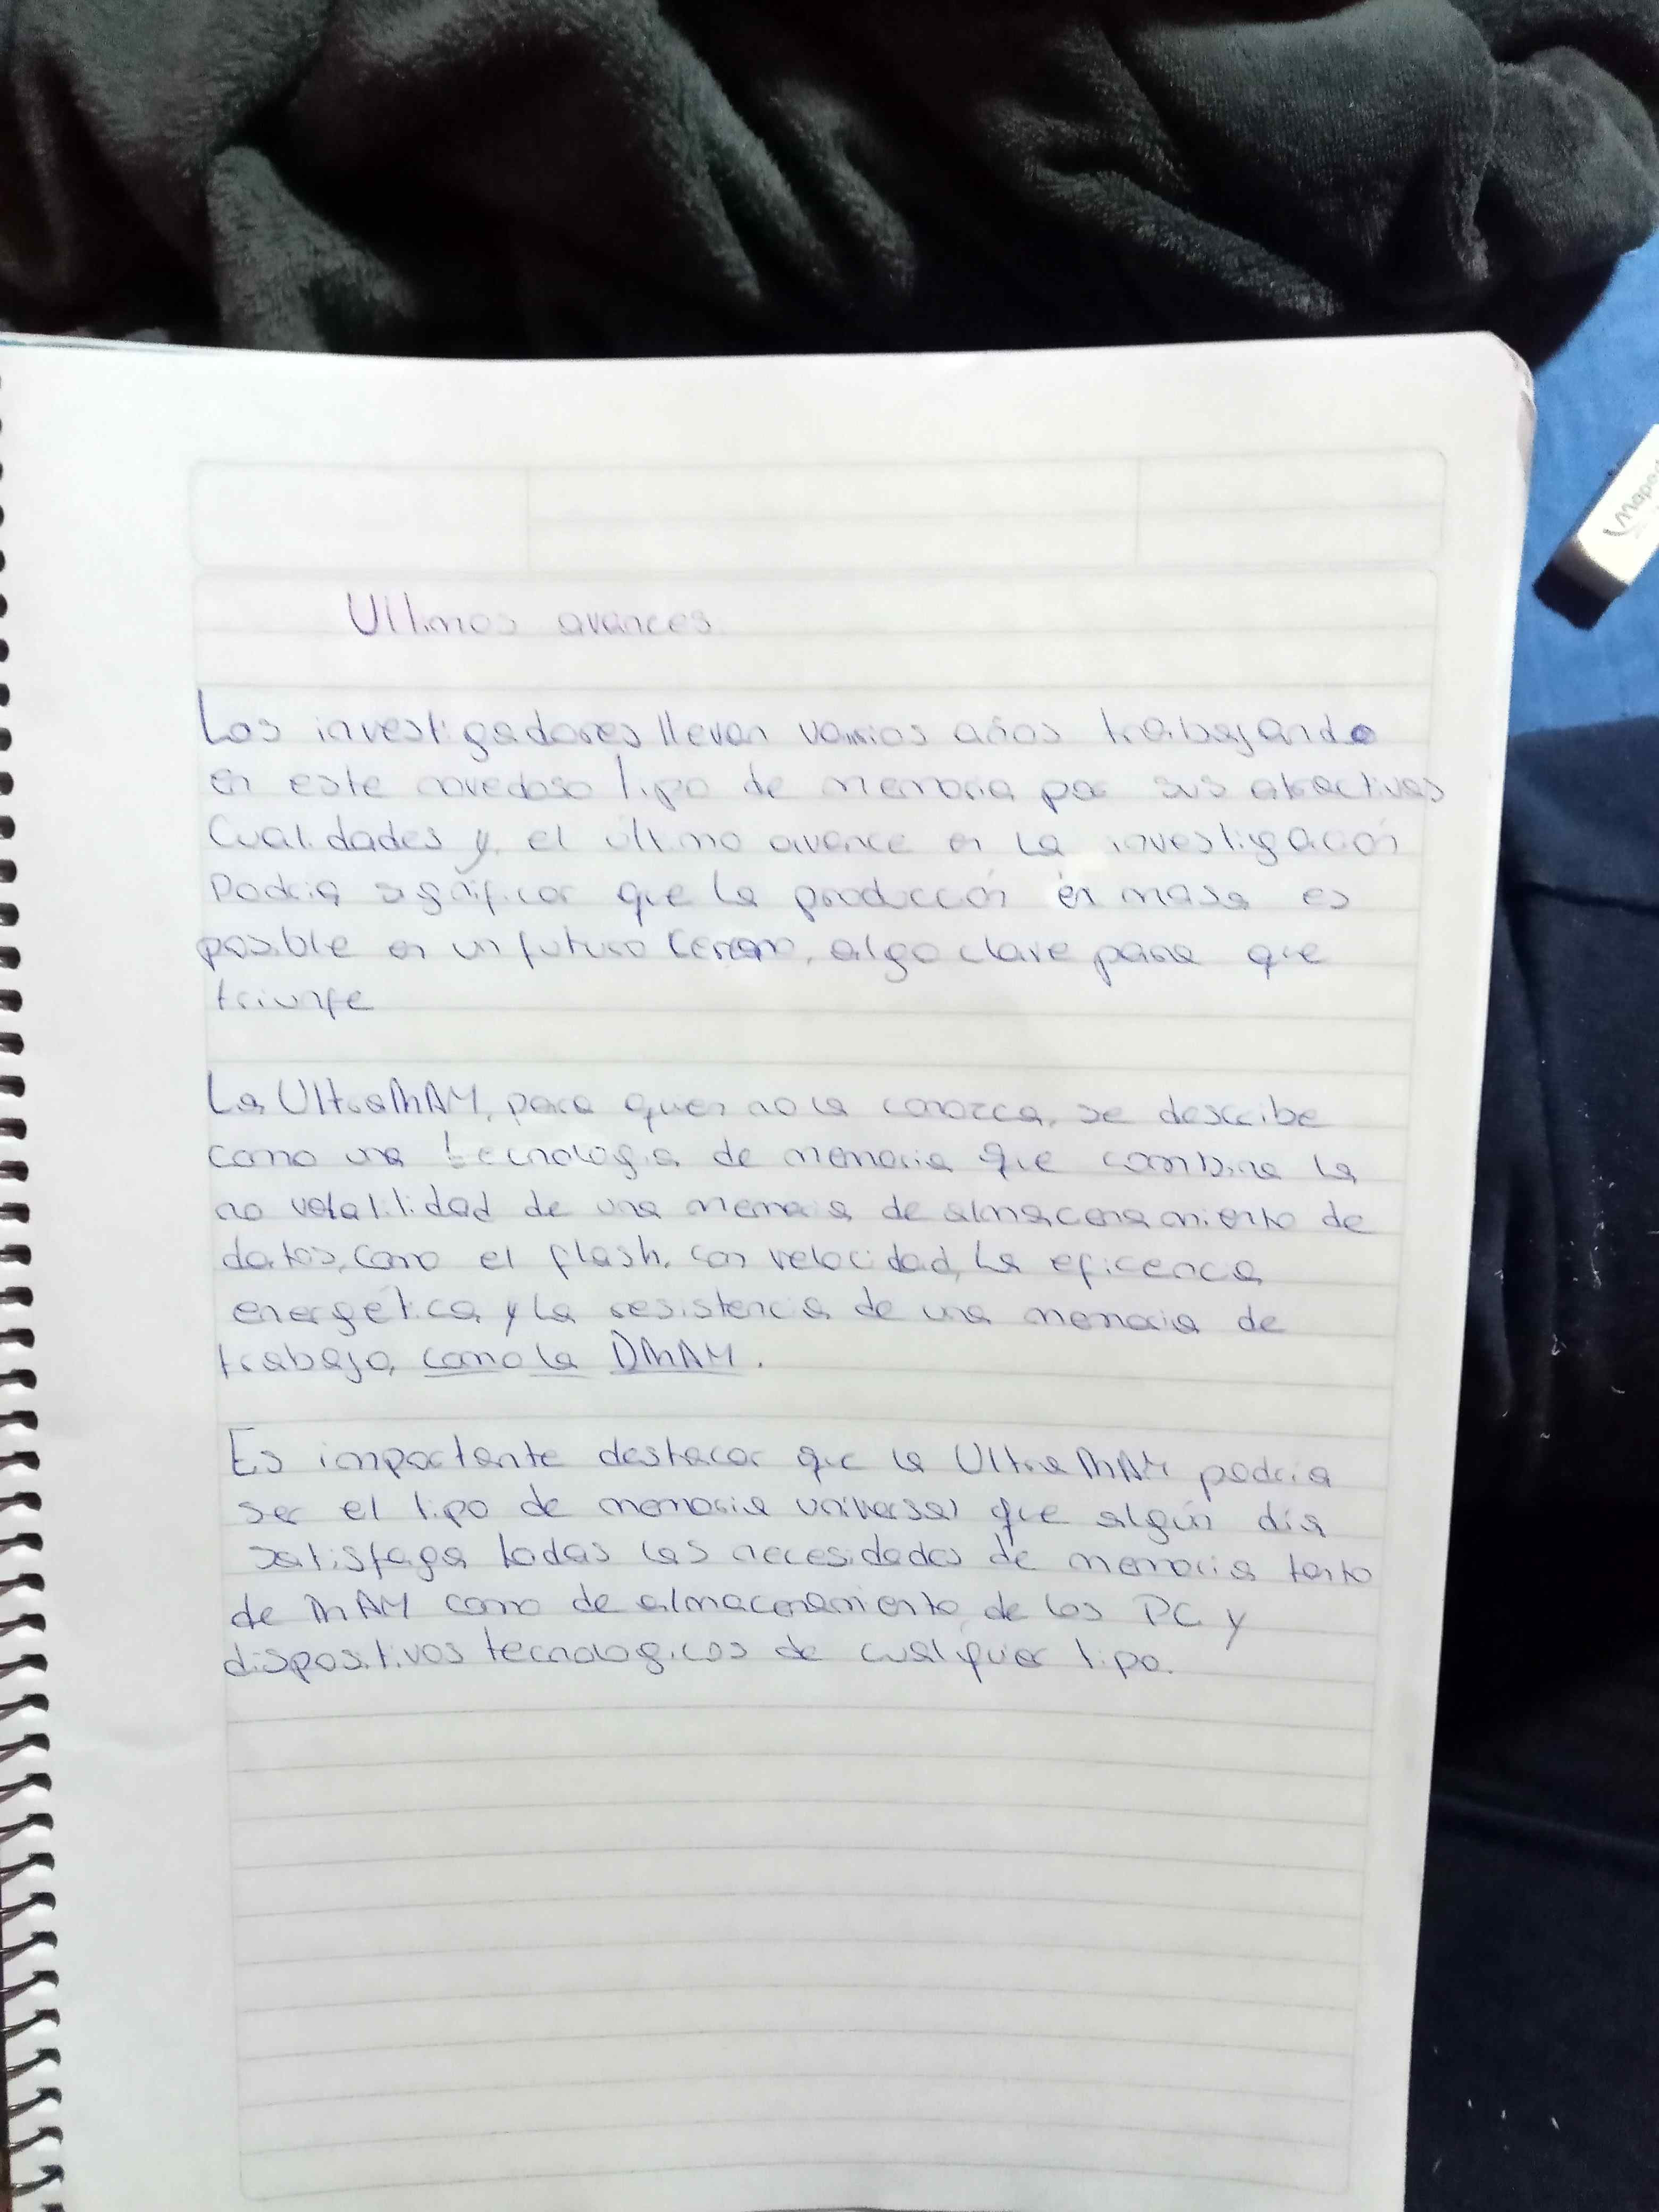 Ultimos avances
Los investigadores llevan varios años trabajando
en este novedoso tipo de memoria por sus atractivas
Cualidades y el último avance en la investigación
Podria significar que la producción en masa es
posible en un futuro cercano, algo clave para que
triunfe
La UltraRAM, para quien no la conozca, se describe
como una tecnologia de memoria que combina la
no volatilidad de una memoria de almacenamiento de
datos, como el flash, con velocidad, la eficencia
energética y la resistencia de una memoria de
trabajo, como la DRAM.
Es importante destacar que la UltraRAM podria
ser el tipo de memoria universal que algún día
satisfaga todas las necesidades de memoria tanto
de RAM como de almacenamiento de los PC y
dispositivos tecnologicos de cualquier tipo.
Maped